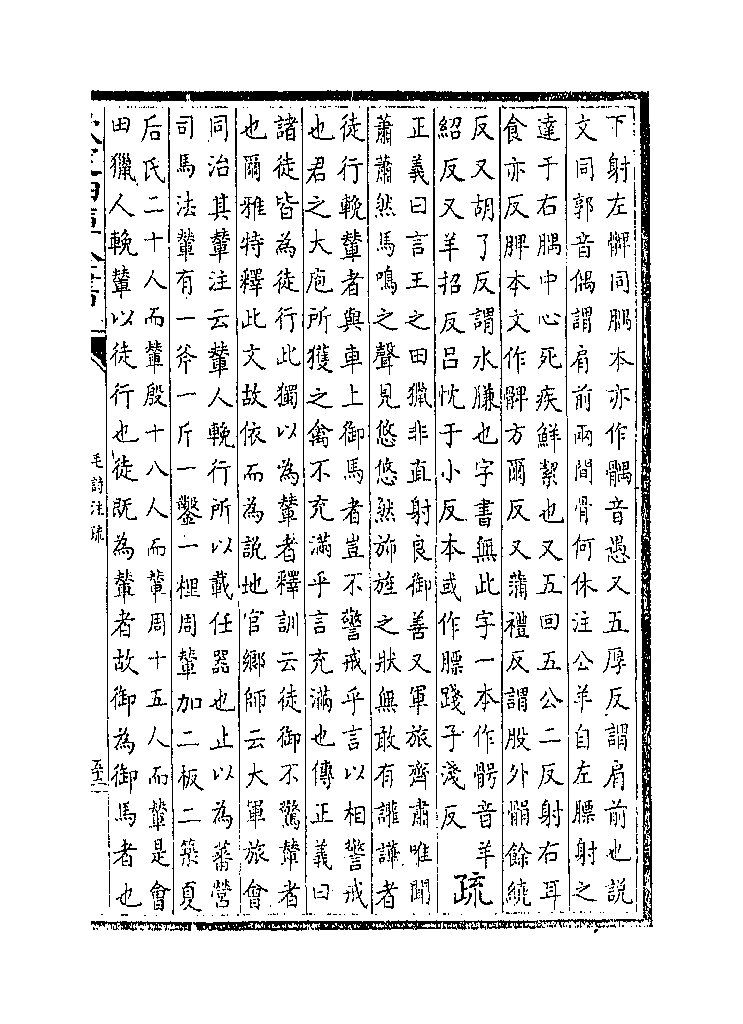 下射左髀同腢本亦作髃音愚又五厚反謂肩前也說
文同郭音偶謂肩前兩間骨何休注公羊自左膘射之
達于右腢中心死疾鮮絜也又五回五公二反射右耳
食亦反脾本文作髀方爾反又蒲禮反謂股外餘繞
反又胡了反謂水膁也字書無此字一本作音羊
紹反又羊招反呂忱于小反本或作膘踐子淺反
疏
正義曰言王之田獵非直射良御善又軍旅齊肅唯聞
蕭蕭然馬鳴之聲見悠悠然旆旌之狀無敢有讙譁者
徒行輓輦者與車上御馬者豈不警戒乎言以相警戒
也君之大庖所獲之禽不充滿乎言充滿也傳正義曰
諸徒皆為徒行此獨以為輦者釋訓云徒御不驚輦者
也爾雅特釋此文故依而為說地官鄉師云大軍旅會
同治其輦注云輦人輓行所以載任器也止以為蕃營
司馬法輦有一斧一斤一鑿一梩周輦加二板二築夏
后氏二十人而輦殷十八人而輦周十五人而輦是會
田獵人輓輦以徒行也徒既為輦者故御為御馬者也
毛詩注疏